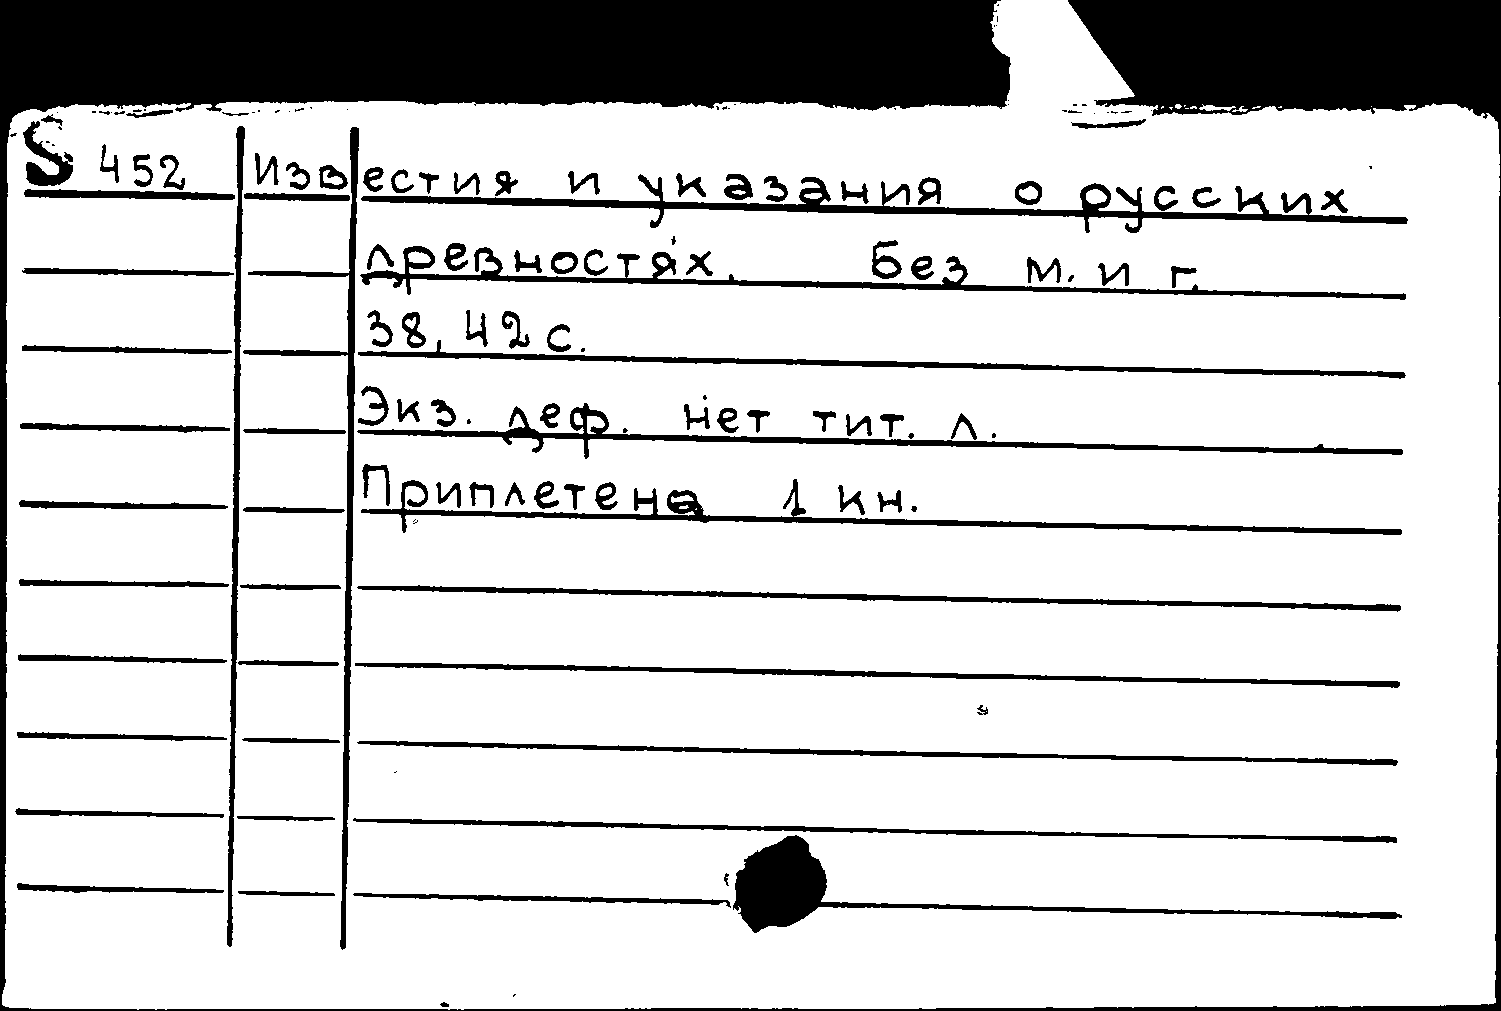 S 452 Известия и указания о русских
древностях. Без м. и г.
38, 42 с.
Экз. деф. нет тит. л.
Приплетена 1 кн.